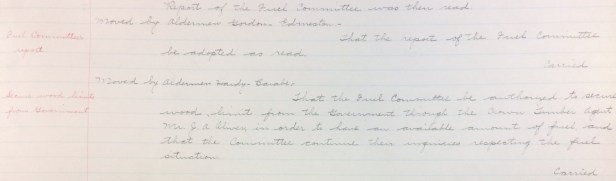 Report of the Fuel Committee was then read
Moved by Aldermen Gordon. Edmeston -
Fuel Committee
report
That the report of the Fuel Committee
be adopted as read
Carried
Moved by Aldermen Hardy.
wood limit
from Government
That the Fuel Committee be authorized to secure
wood limit from the Government through the Crown Timber Agent
Mr. J. A. in order to have an available amount of fuel and
that the Committee continue their inquiries respecting the fuel
situation
Carried